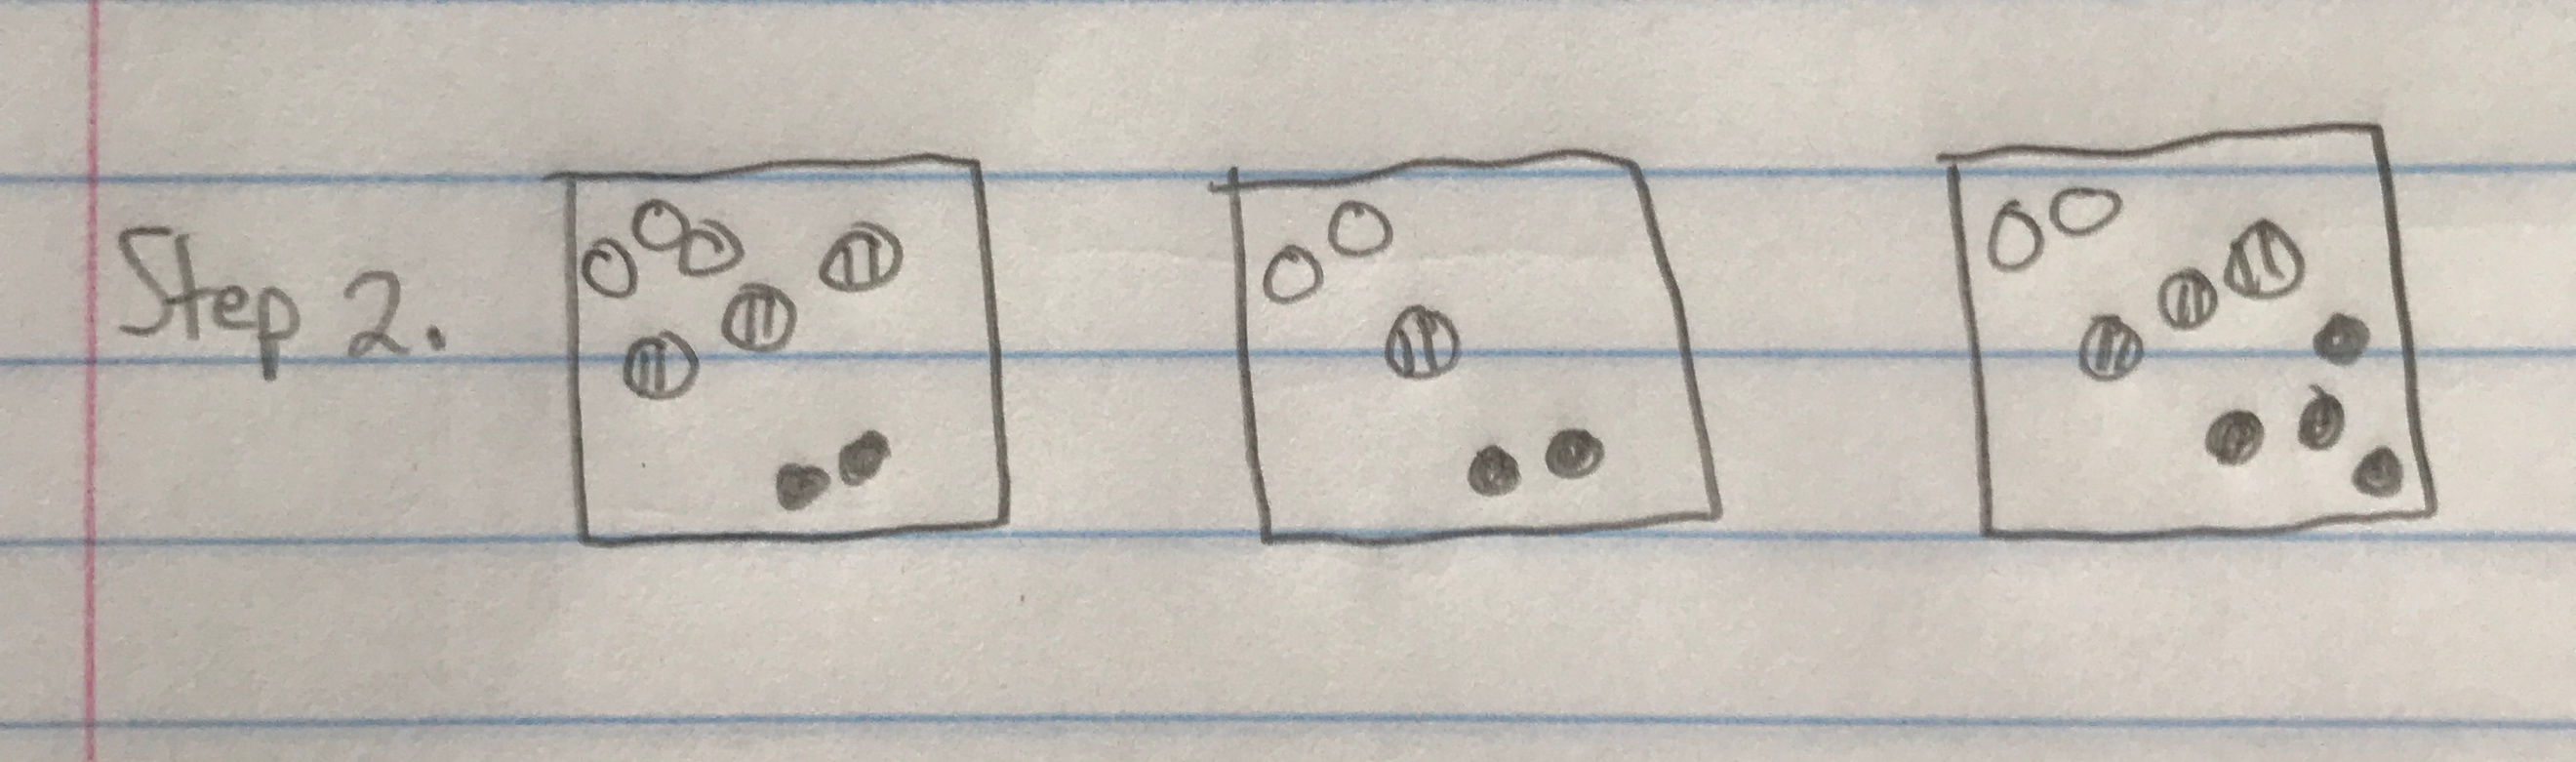 Step 2.